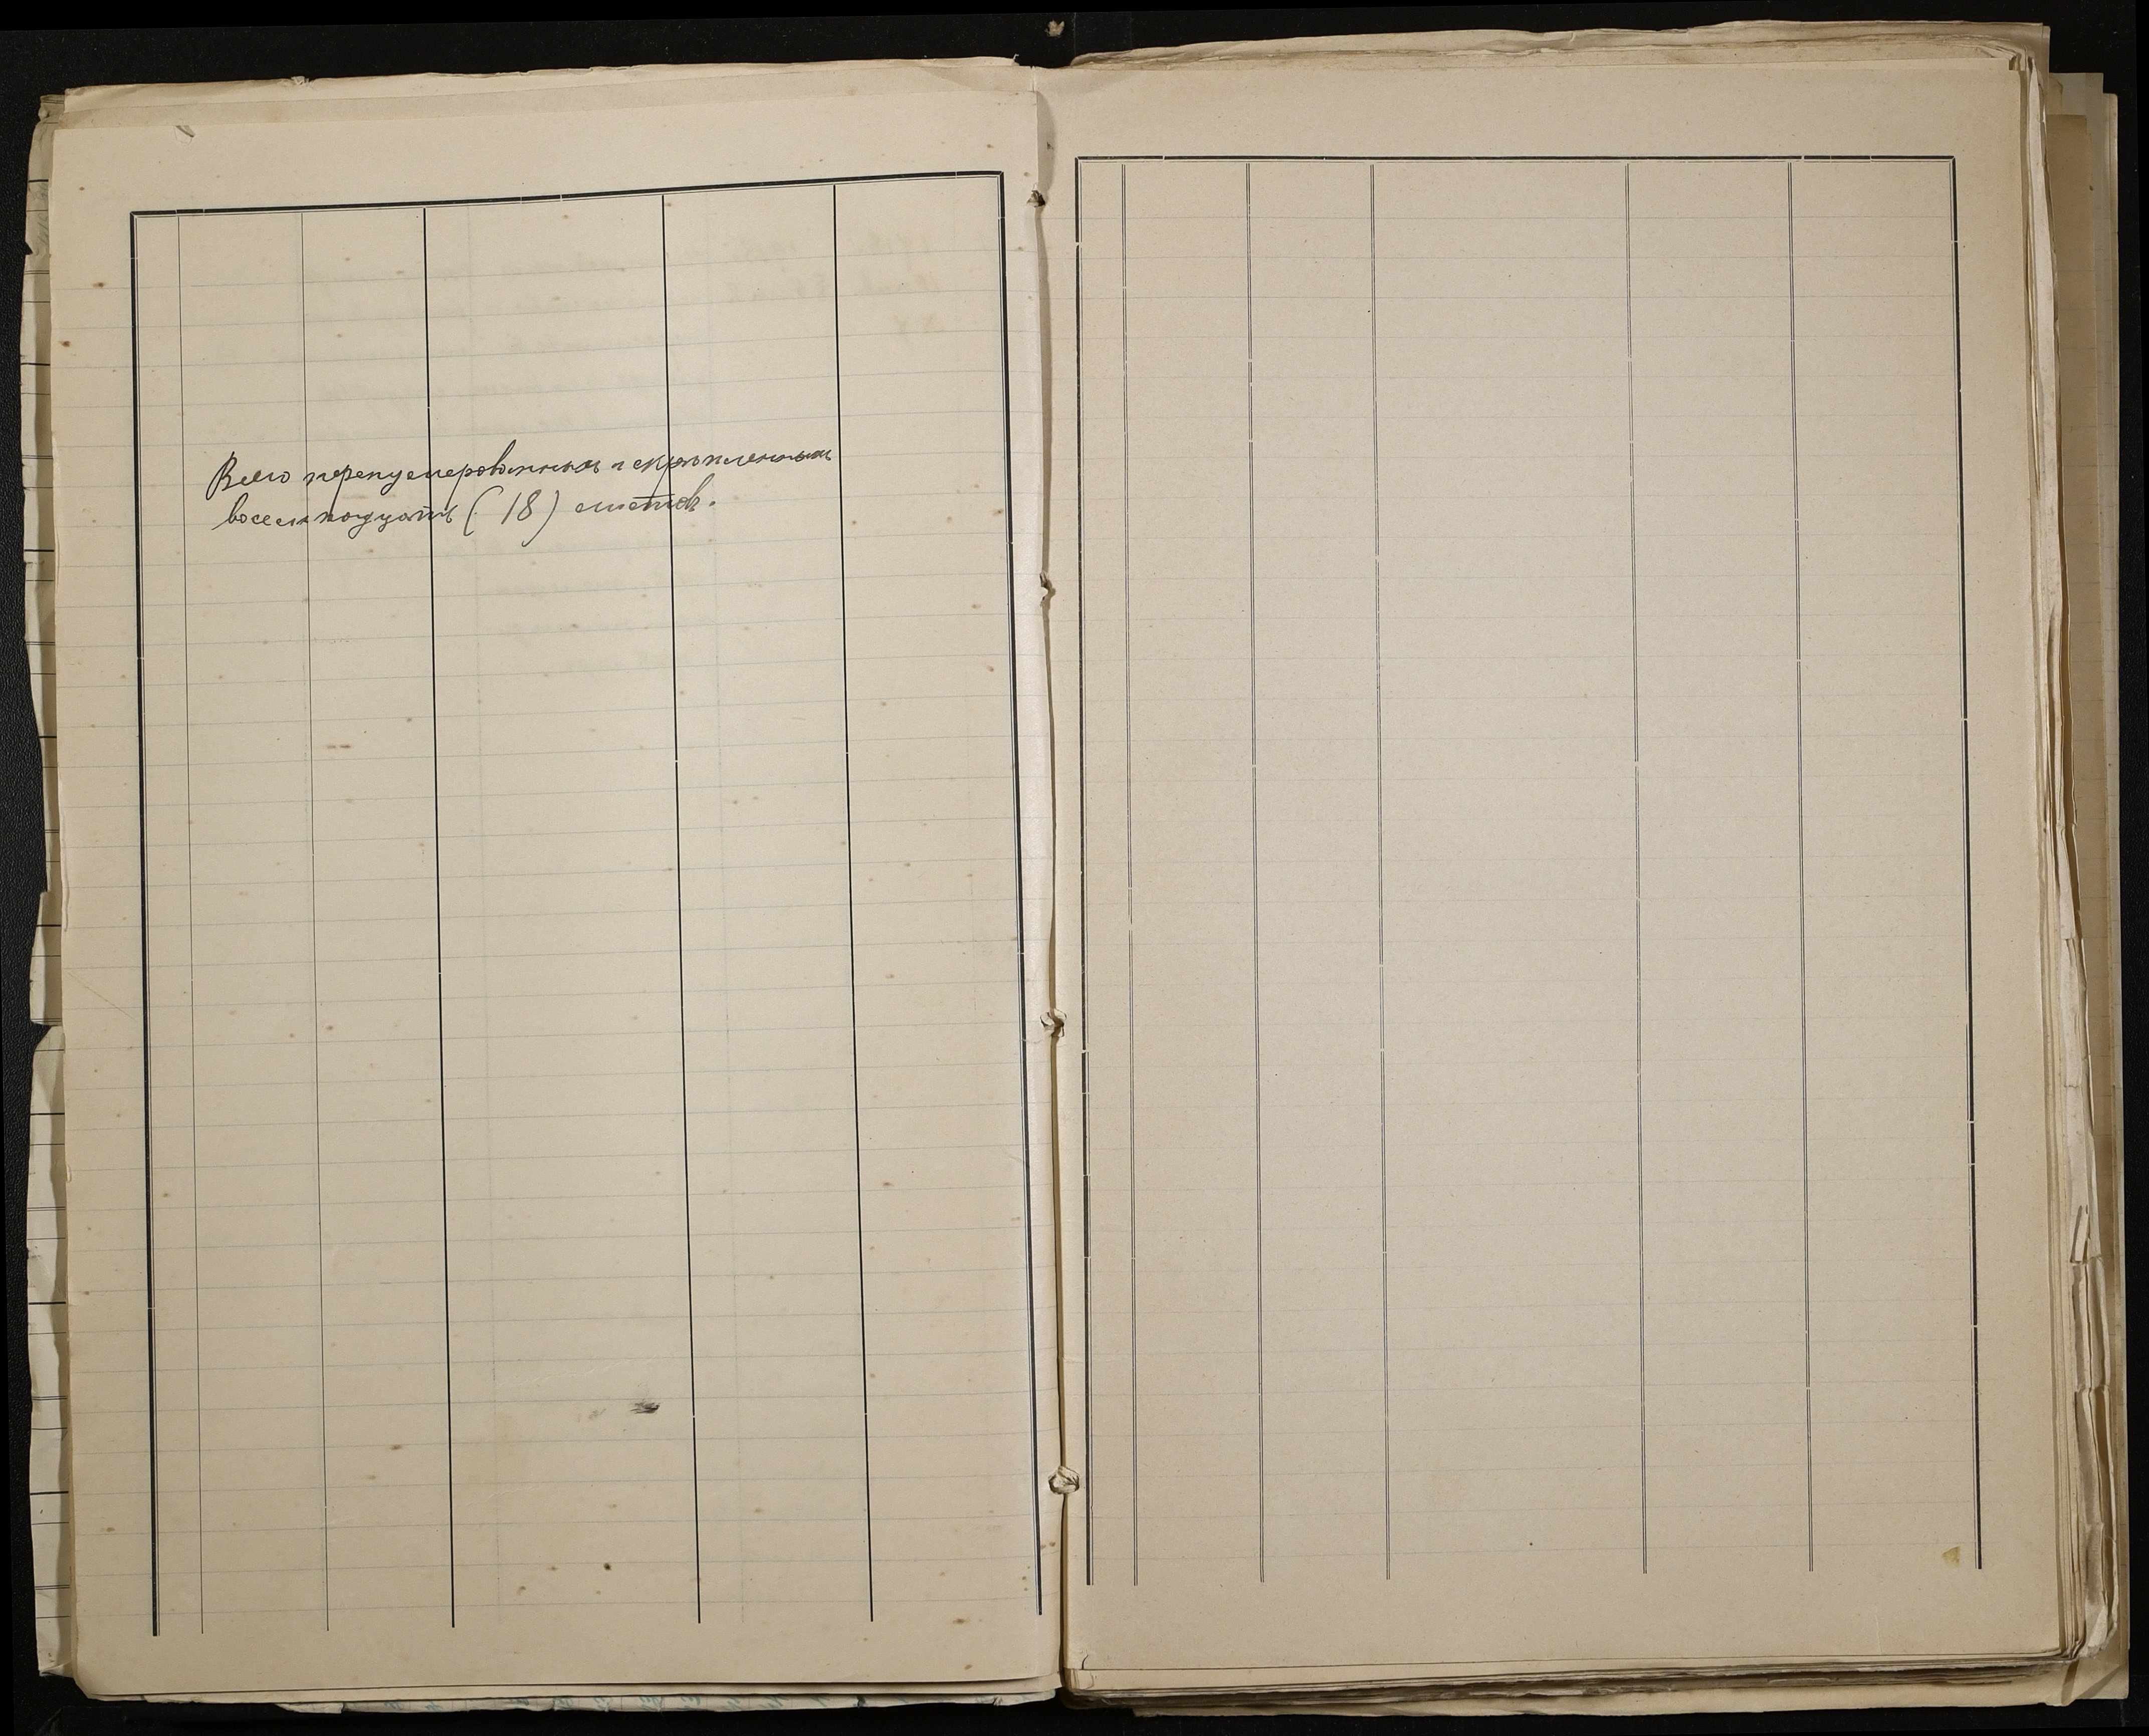 Всего перенумерованныхъ и скрѣпленныхъ
восемнадцать (18) листовъ.